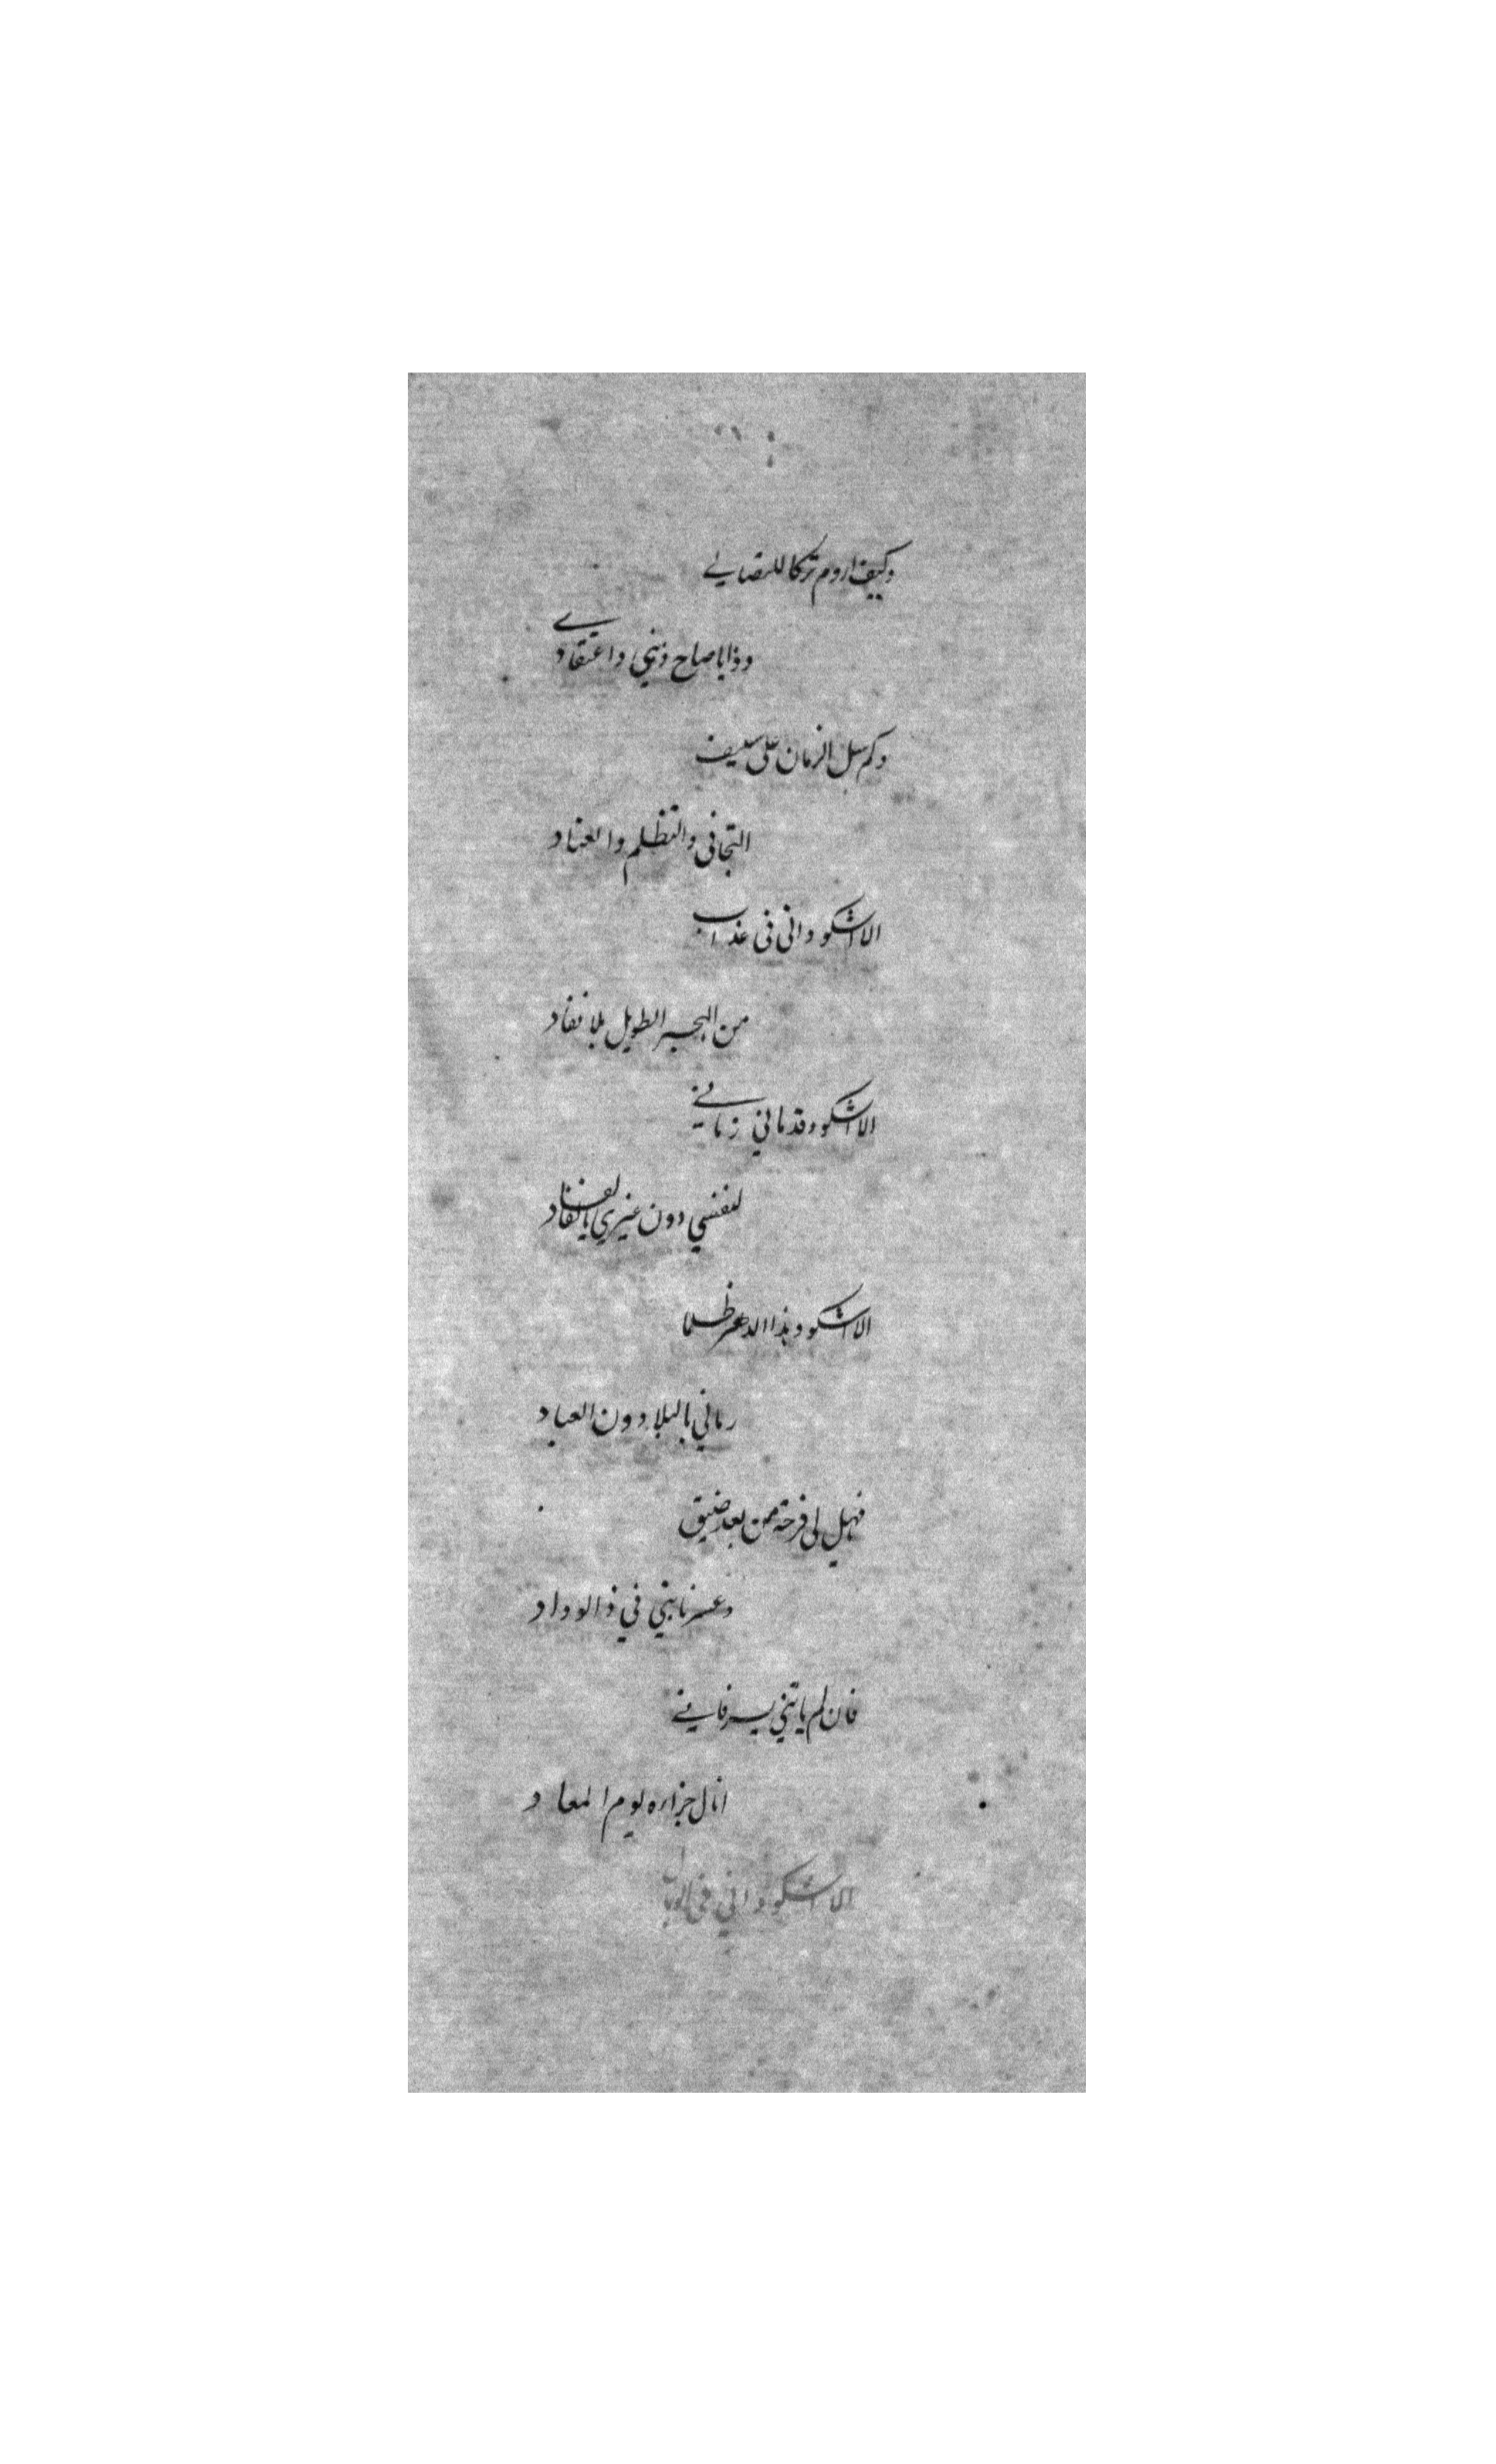 وكيف اروم تركا للتصابي
وذا يا صاح ديني واعتقادي
وكم سل الزمان علي سيف
التجافى والتظلم والعناد
الا اشكو وانى فى عذاب
من الهجر الطويل بلا نفاد
الا اشكو وقد مانى زمانى
لنفسي دون غيري بالفقاد
الا اشكو وهذا الدهر ظلما
رماني بالبلا دون العباد
فهل لى فرحة من بعد ضيق
وعسر نابني في ذا الوداد
فان لم ياتني يسر فاني
انال جزاءه يوم المعاد
الا اشكو واني فى الوبال